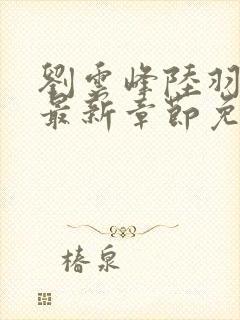 劉雲峰陸羽
最新章節免
椿泉